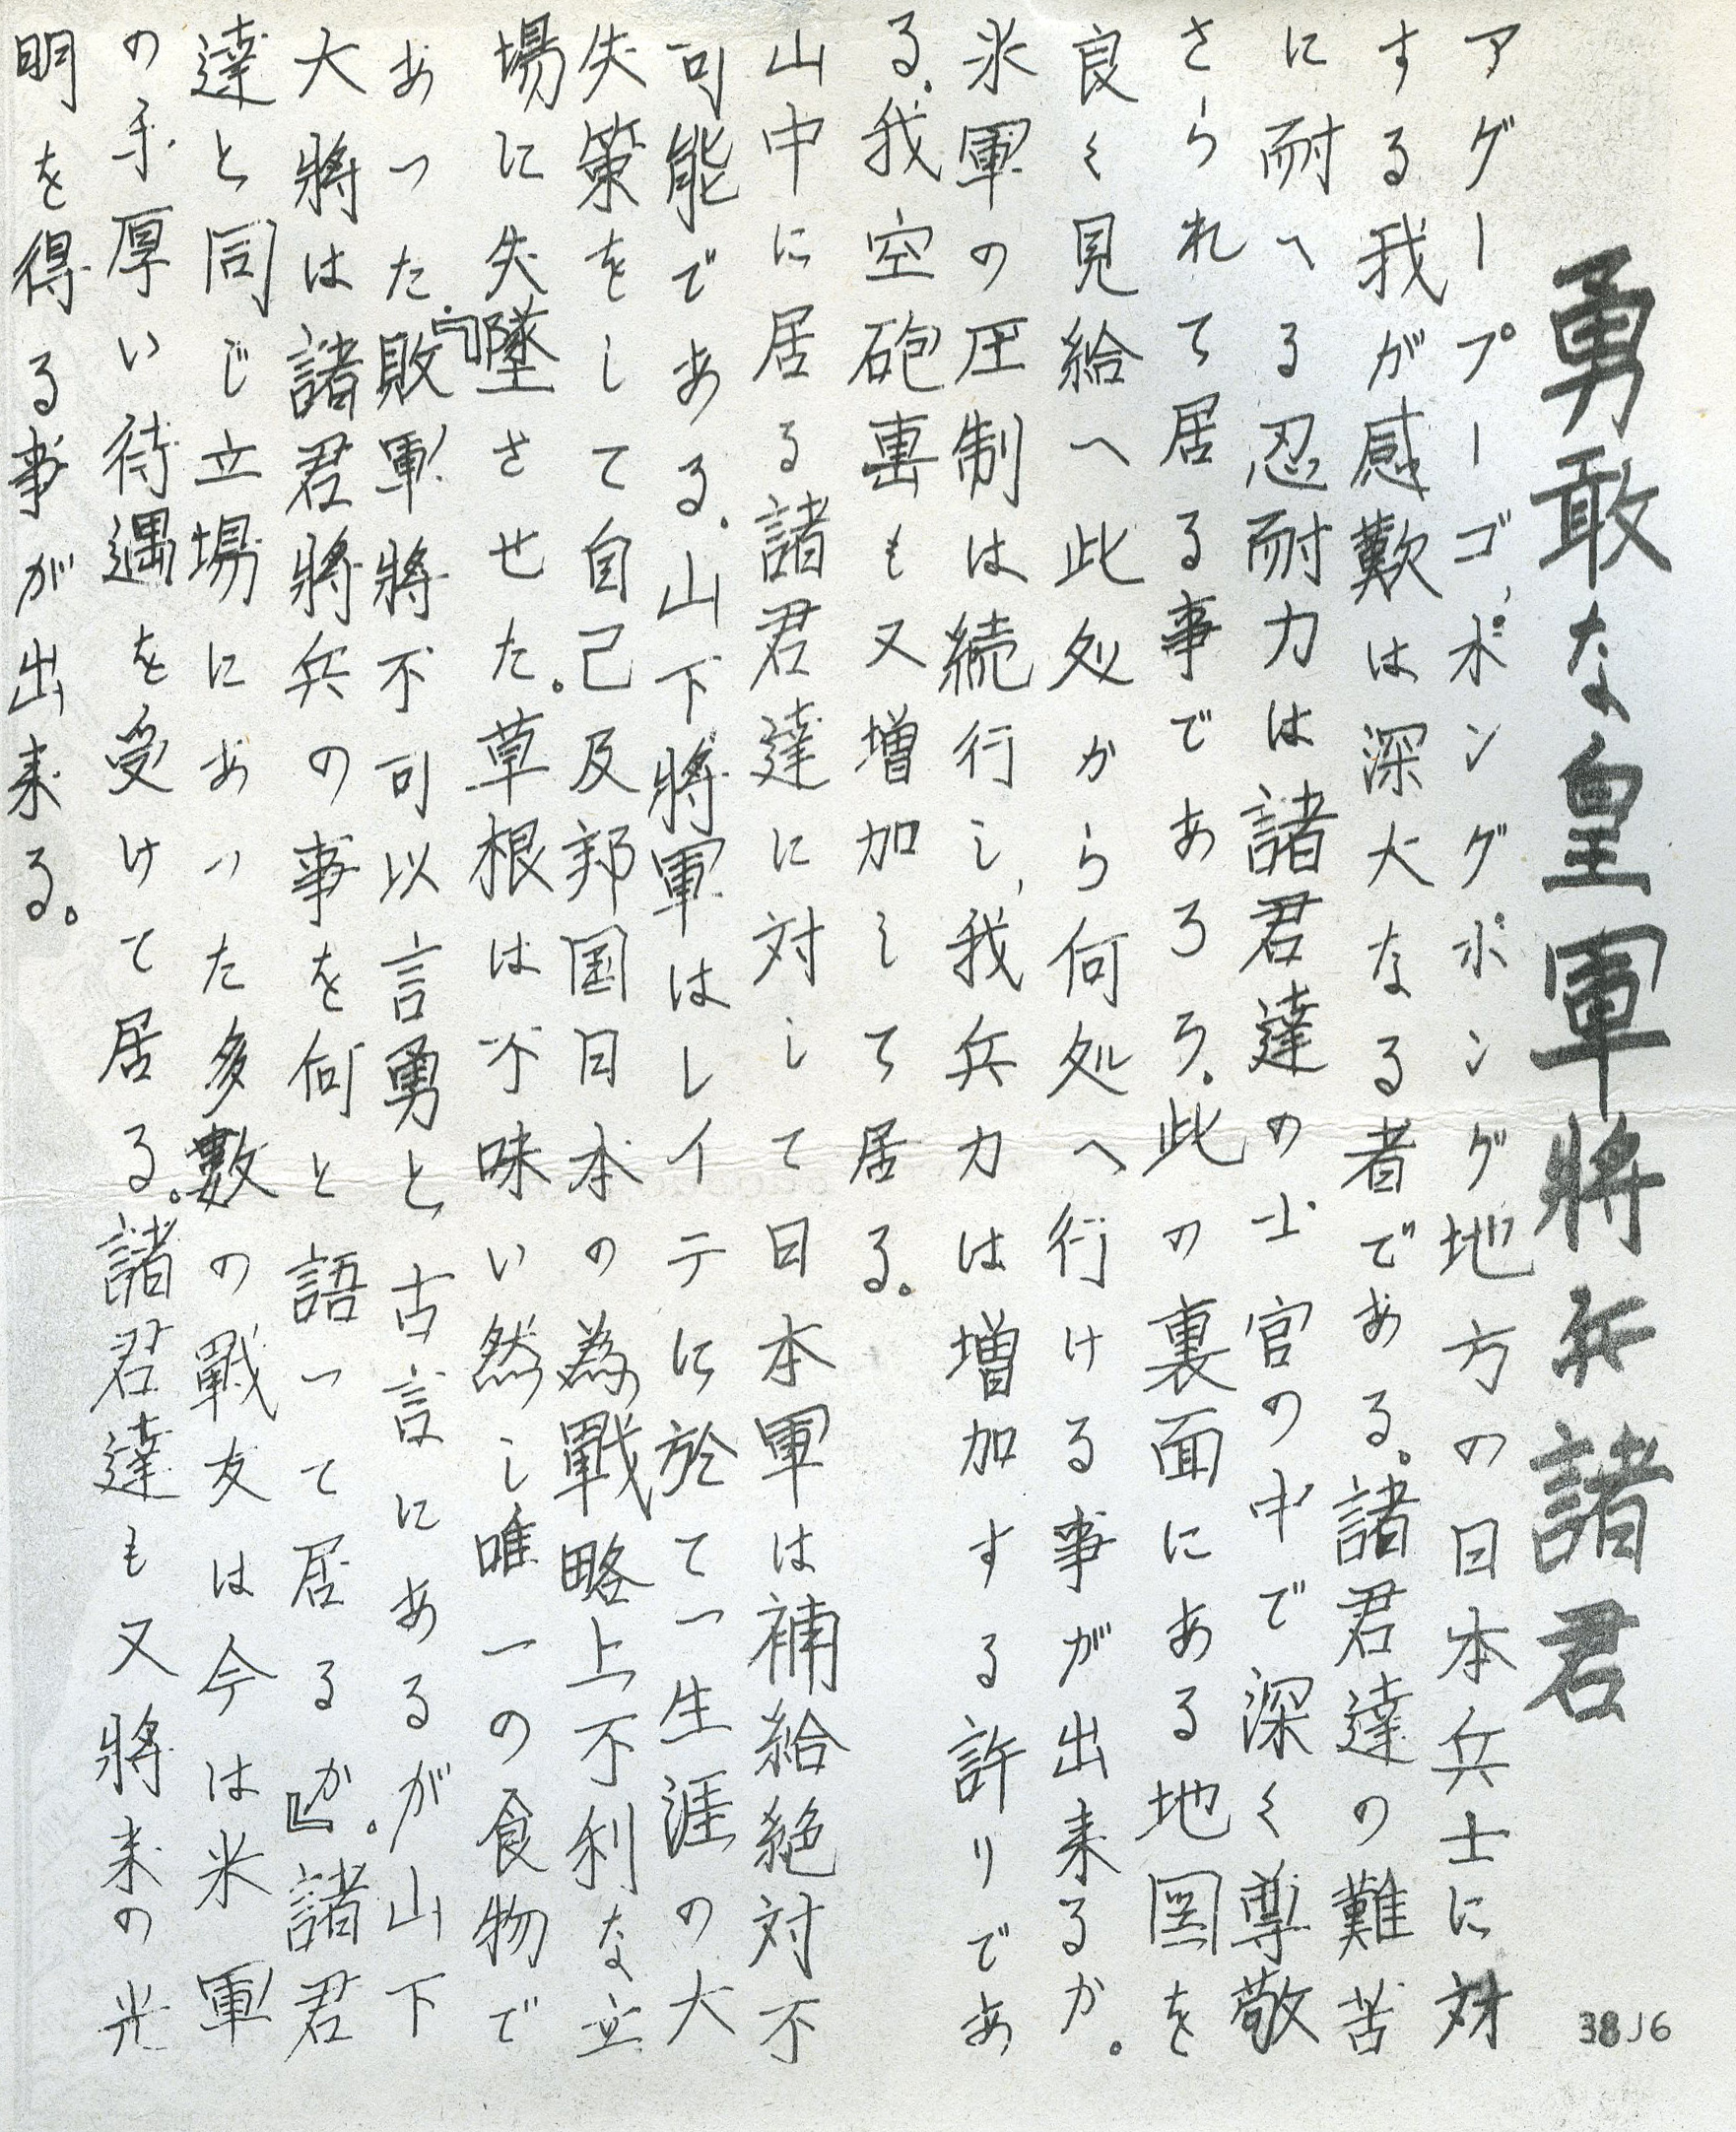 勇敢な皇軍将兵諸君
アグープーゴ、ボングボング地方の日本兵士に対
する我が感歎は深大なる者である。諸君達の難苦
に耐へる忍耐力は諸君達の士官の中で深く尊敬
さられて居る事であろう。此の裏面にある地図を
良く見給へ此処から何処へ行ける事が出来るか。
米軍の圧制は続行し、我兵力は増加する許りであ
る。我空砲裏も又増加して居る。
山中に居る諸君達に対して日本軍は補給絶対不
可能である。山下將軍はレイテに於て一生涯の大
失策をして自己及邦国日本の為戰略上不利な立
場に失墜させた。草根は不味い然し唯一の食物で
あった。『敗軍將不可以言勇と古言にあるが山下
大將は諸君將兵の事を何と語って居るか』。諸君
達と同じ立場にあった多數の戰友は今は米軍
の手厚い待遇を受けて居る。諸君達も又將来の光
明を得る事が出来る。
38J6